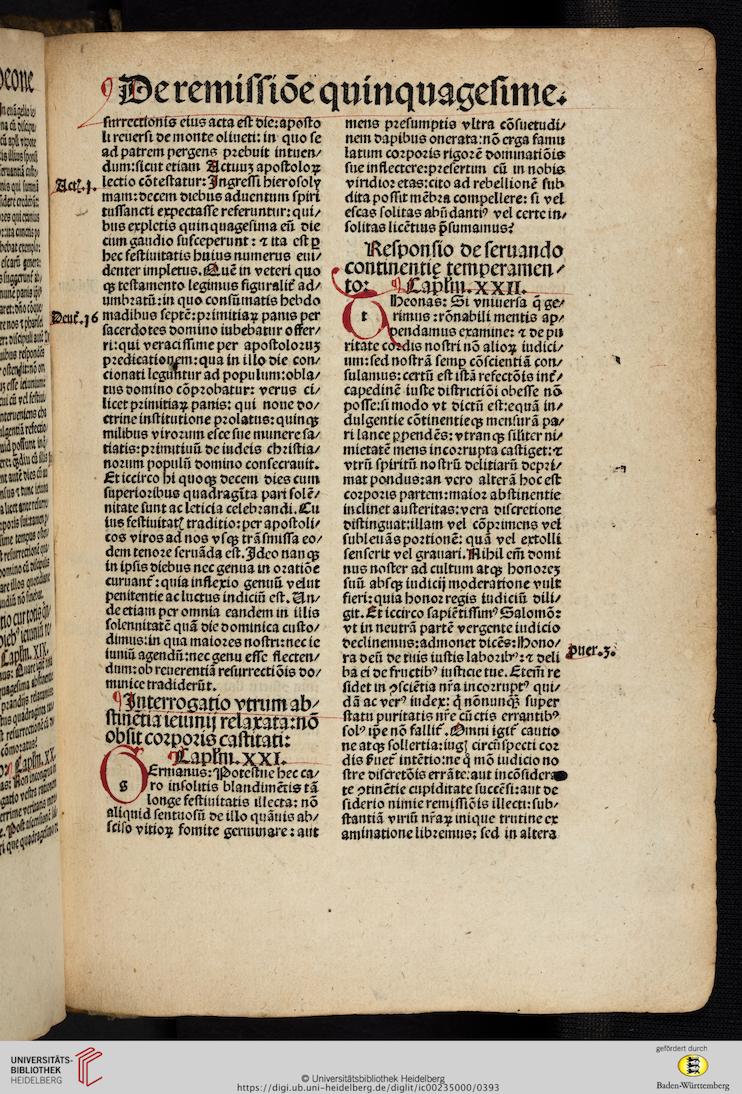 De remissiõe quinquagesime.
surrectionis eius acta est die: aposto
li reuersi de monte oliueti: in quo se
ad patrem pergens prebuit intuen/
dum: sicut etiam Actuuꝫ apostoloꝝ
Actꝭ.1.
lectio cõtestatur: Ingressi hierosoly
mam: decem diebus aduentum spiri
tussancti expectasse referuntur: qui/
bus expletis quinquagesima eũ die
cum gaudio susceperunt: ⁊ ita est ꝑ
hec festiuitatis huius numerus eui/
denter impletus. Quẽ in veteri quo
qꝫ testamento legimus figuraliṫ ad/
umbratũ: in quo consũmatis hebdo
Deuṫ.16
madibus septẽ: primitiaꝝ panis per
sacerdotes domino iubebatur offer/
ri: qui veracissime per apostoloruꝫ
predicationem: qua in illo die con/
cionati leguntur ad populum: obla/
tus domino cõprobatur: verus ci/
licet primitiaꝝ panis: qui noue do/
ctrine institutione prolatus: quinqꝫ
milibus virorum esce sue munere sa/
tiatis: primitiuũ de iudeis christia/
norum populũ domino consecrauit.
Et iccirco hi quoqꝫ decem dies cum
superioribus quadragĩta pari solẽ/
nitate sunt ac leticia celebrandi. Cu
ius festiuitatꝭ traditio: per apostoli/
cos viros ad nos vsqꝫ trãsmissa eo/
dem tenore seruãda est. Ideo nanqꝫ
in ipsis diebus nec genua in oratiõe
curuanṫ: quia inflexio genuũ velut
penitentie ac luctus indiciũ est. Un/
de etiam per omnia eandem in illis
solennitatẽ quã die dominica custo/
dimus: in qua maiores nostri: nec ie
iuniũ agendũ: nec genu esse flecten/
dum: ob reuerentiã resurrectiõis do/
minice tradiderũt.
Interrogatio vtrum ab/
stinẽtia ieiunij relaxata: nõ
obsit corporis castitati:
Capľm. XXI.
GErmanus: Potestne hec ca/
ro insolitis blandimẽtis tã
longe festiuitatis illecta: nõ
aliquid sentuosũ de illo quãuis ab/
sciso vitioꝝ fomite germinare: aut
mens presumptis vltra cõsuetudi/
nem dapibus onerata: nõ erga famu
latum corporis rigorẽ dominatiõis
sue inflectere: presertim cũ in nobis
viridior etas: cito ad rebellionẽ sub
dita possit mẽbra compellere: si vel
escas solitas abũdantiꝰ vel certe in/
solitas licẽtius p̃sumamus?
Responsio de seruando
continentie temperamen/
to: Capľm. XXII.
THeonas: Si vniuersa q̃ ge/
rimus: rõnabili mentis ap/
pendamus examine: ⁊ de pu
ritate cordis nostri nõ alioꝝ iudici/
um: sed nostrã semꝑ cõscientiã con/
sulamus: certũ est istã refectõis inṫ/
capedinẽ iuste districtiõi obesse nõ
posse: si modo vt dictũ est: equã in/
dulgentie cõtinentieqꝫ mensurã pa/
ri lance ꝑpendẽs: vtranqꝫ siliter ni/
mietatẽ mens incorrupta castiget: ⁊
vtrũ spiritũ nostrũ delitiarũ depri/
mat pondus: an vero alterã hoc est
corporis partem: maior abstinentie
inclinet austeritas: vera discretione
distinguat: illam vel cõprimens vel
subleuãs portionẽ: quã vel extolli
senserit vel grauari. Nihil em̃ domi
nus noster ad cultum atqꝫ honoreꝫ
suũ absqꝫ iudicij moderatione vult
fieri: quia honor regis iudiciũ dili/
git. Et iccirco sapiẽtissimꝰ Salomõ:
vt in neutrã partẽ vergente iudicio
declinemus: admonet dicẽs: Hono/
ra deũ de tuis iustis laboribꝰ: ⁊ deli
Puer.3.
ba ei de fructibꝰ iusticie tue. Etem̃ re
sidet in ꝯsciẽtia nr̃a incorruptꝰ qui/
dã ac verꝰ iudex: q̃ nõnunqꝫ super
statu puritatis nr̃e cũctis errantibꝰ
solꝰ ip̃e nõ falliṫ. Omni igiṫ cautio
ne atqꝫ sollertia: iugꝭ circũspecti cor
dis ẜueṫ intẽtio: ne q̃ mõ iudicio no
stre discretõis errãte: aut incõsidera
te ꝯtinẽtie cupiditate succẽsi: aut de
siderio nimie remissiõis illecti: sub/
stantiã viriũ nr̃aꝝ inique trutine ex
aminatione libremus: sed in altera